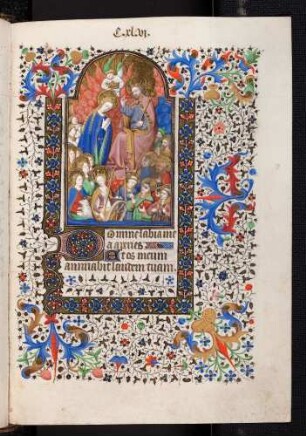 C.xl.vi.
Domine labia me
a aperies
Et os meum
annuntiabit laudem tuam.